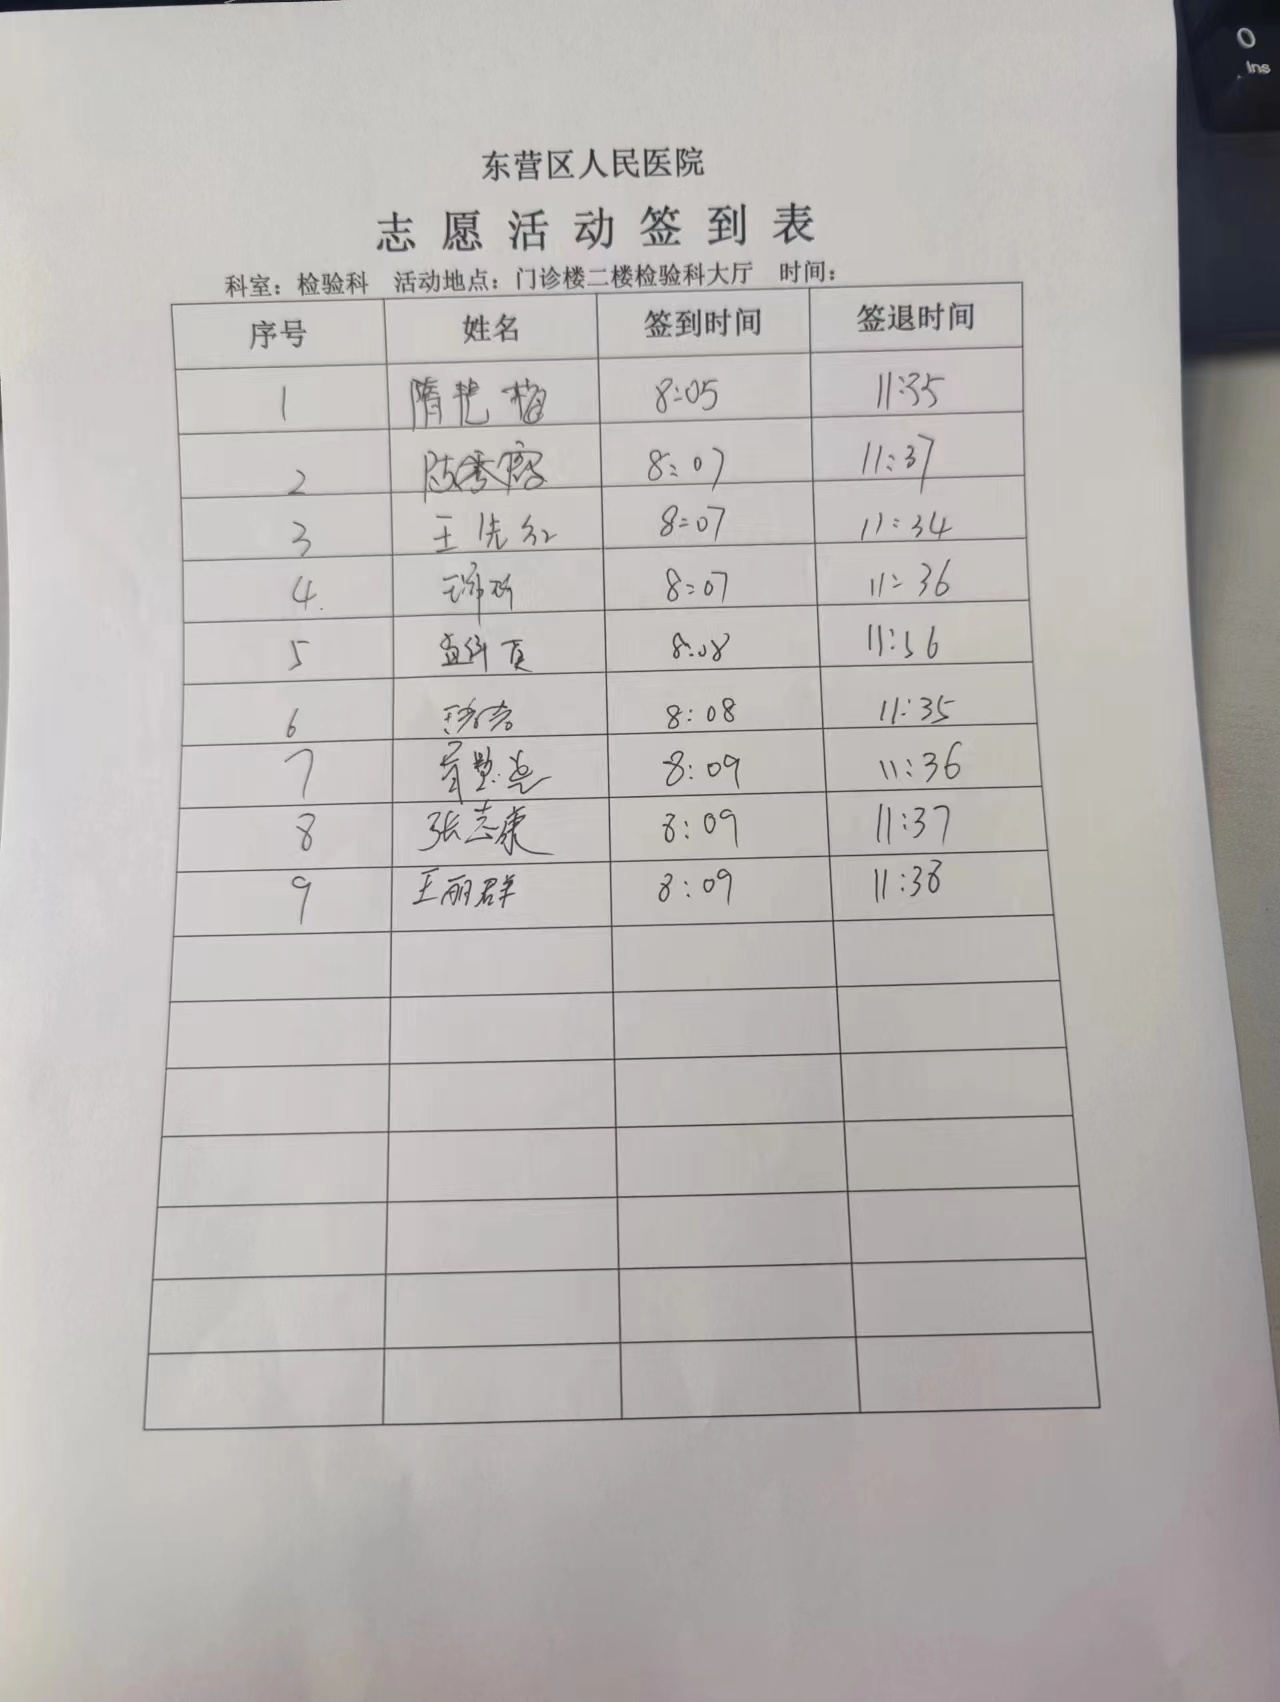 0
Ins
东营区人民医院
志愿活动签到表
科室：检验科 活动地点：门诊楼二楼检验科大厅 时间：
序号 姓名 签到时间 签退时间
1 隋艳梅 8:05 11:35
2 8:07 11:37
3 王先红 8:07 11:34
4 8:07 11:36
5 8:08 11:36
6 8:08 11:35
7 8:09 11:36
8 张志康 8:09 11:37
9 王丽群 8:09 11:38